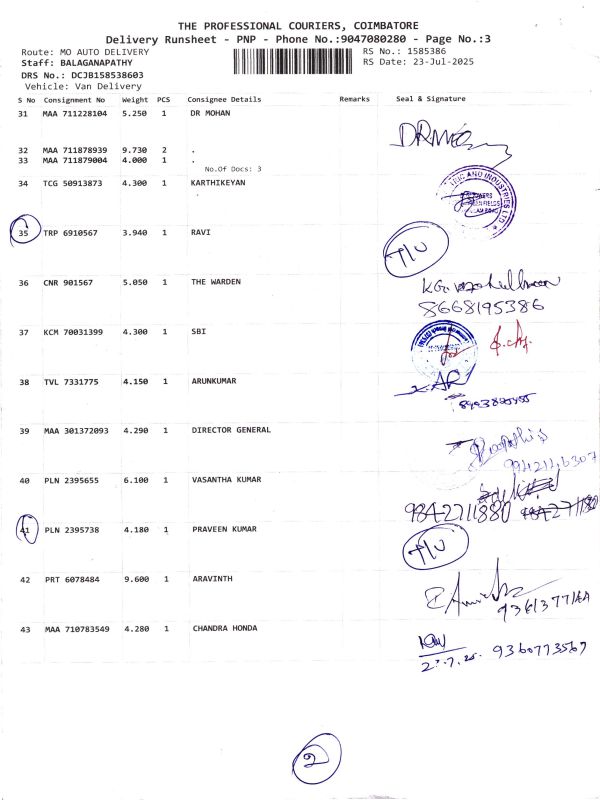 THE PROFESSIONAL COURIERS, COIMBATORE
Delivery Runsheet - PNP - Phone No.:9047080280 - Page No.:3
Route: MO AUTO DELIVERY RS No.: 1585386
Staff: BALAGANAPATHY RS Date: 23-Jul-2025
DRS No.: DCJB158538603
Vehicle: Van Delivery
S No Consignment No Weight PCS Consignee Details Remarks Seal & Signature
31 MAA 711228104 5.250 1 DR MOHAN
32 MAA 711878939 9.730 2 .
33 MAA 711879004 4.000 1 .
No.Of Docs: 3
34 TCG 50913873 4.300 1 KARTHIKEYAN
35 TRP 6910567 3.940 1 RAVI
36 CNR 901567 5.050 1 THE WARDEN
8668195386
37 KCM 70031399 4.300 1 SBI
38 TVL 7331775 4.150 1 ARUNKUMAR
39 MAA 301372093 4.290 1 DIRECTOR GENERAL
9942146307
40 PLN 2395655 6.100 1 VASANTHA KUMAR
9842711880
41 PLN 2395738 4.180 1 PRAVEEN KUMAR
42 PRT 6078484 9.600 1 ARAVINTH
43 MAA 710783549 4.280 1 CHANDRA HONDA
9360773567
2